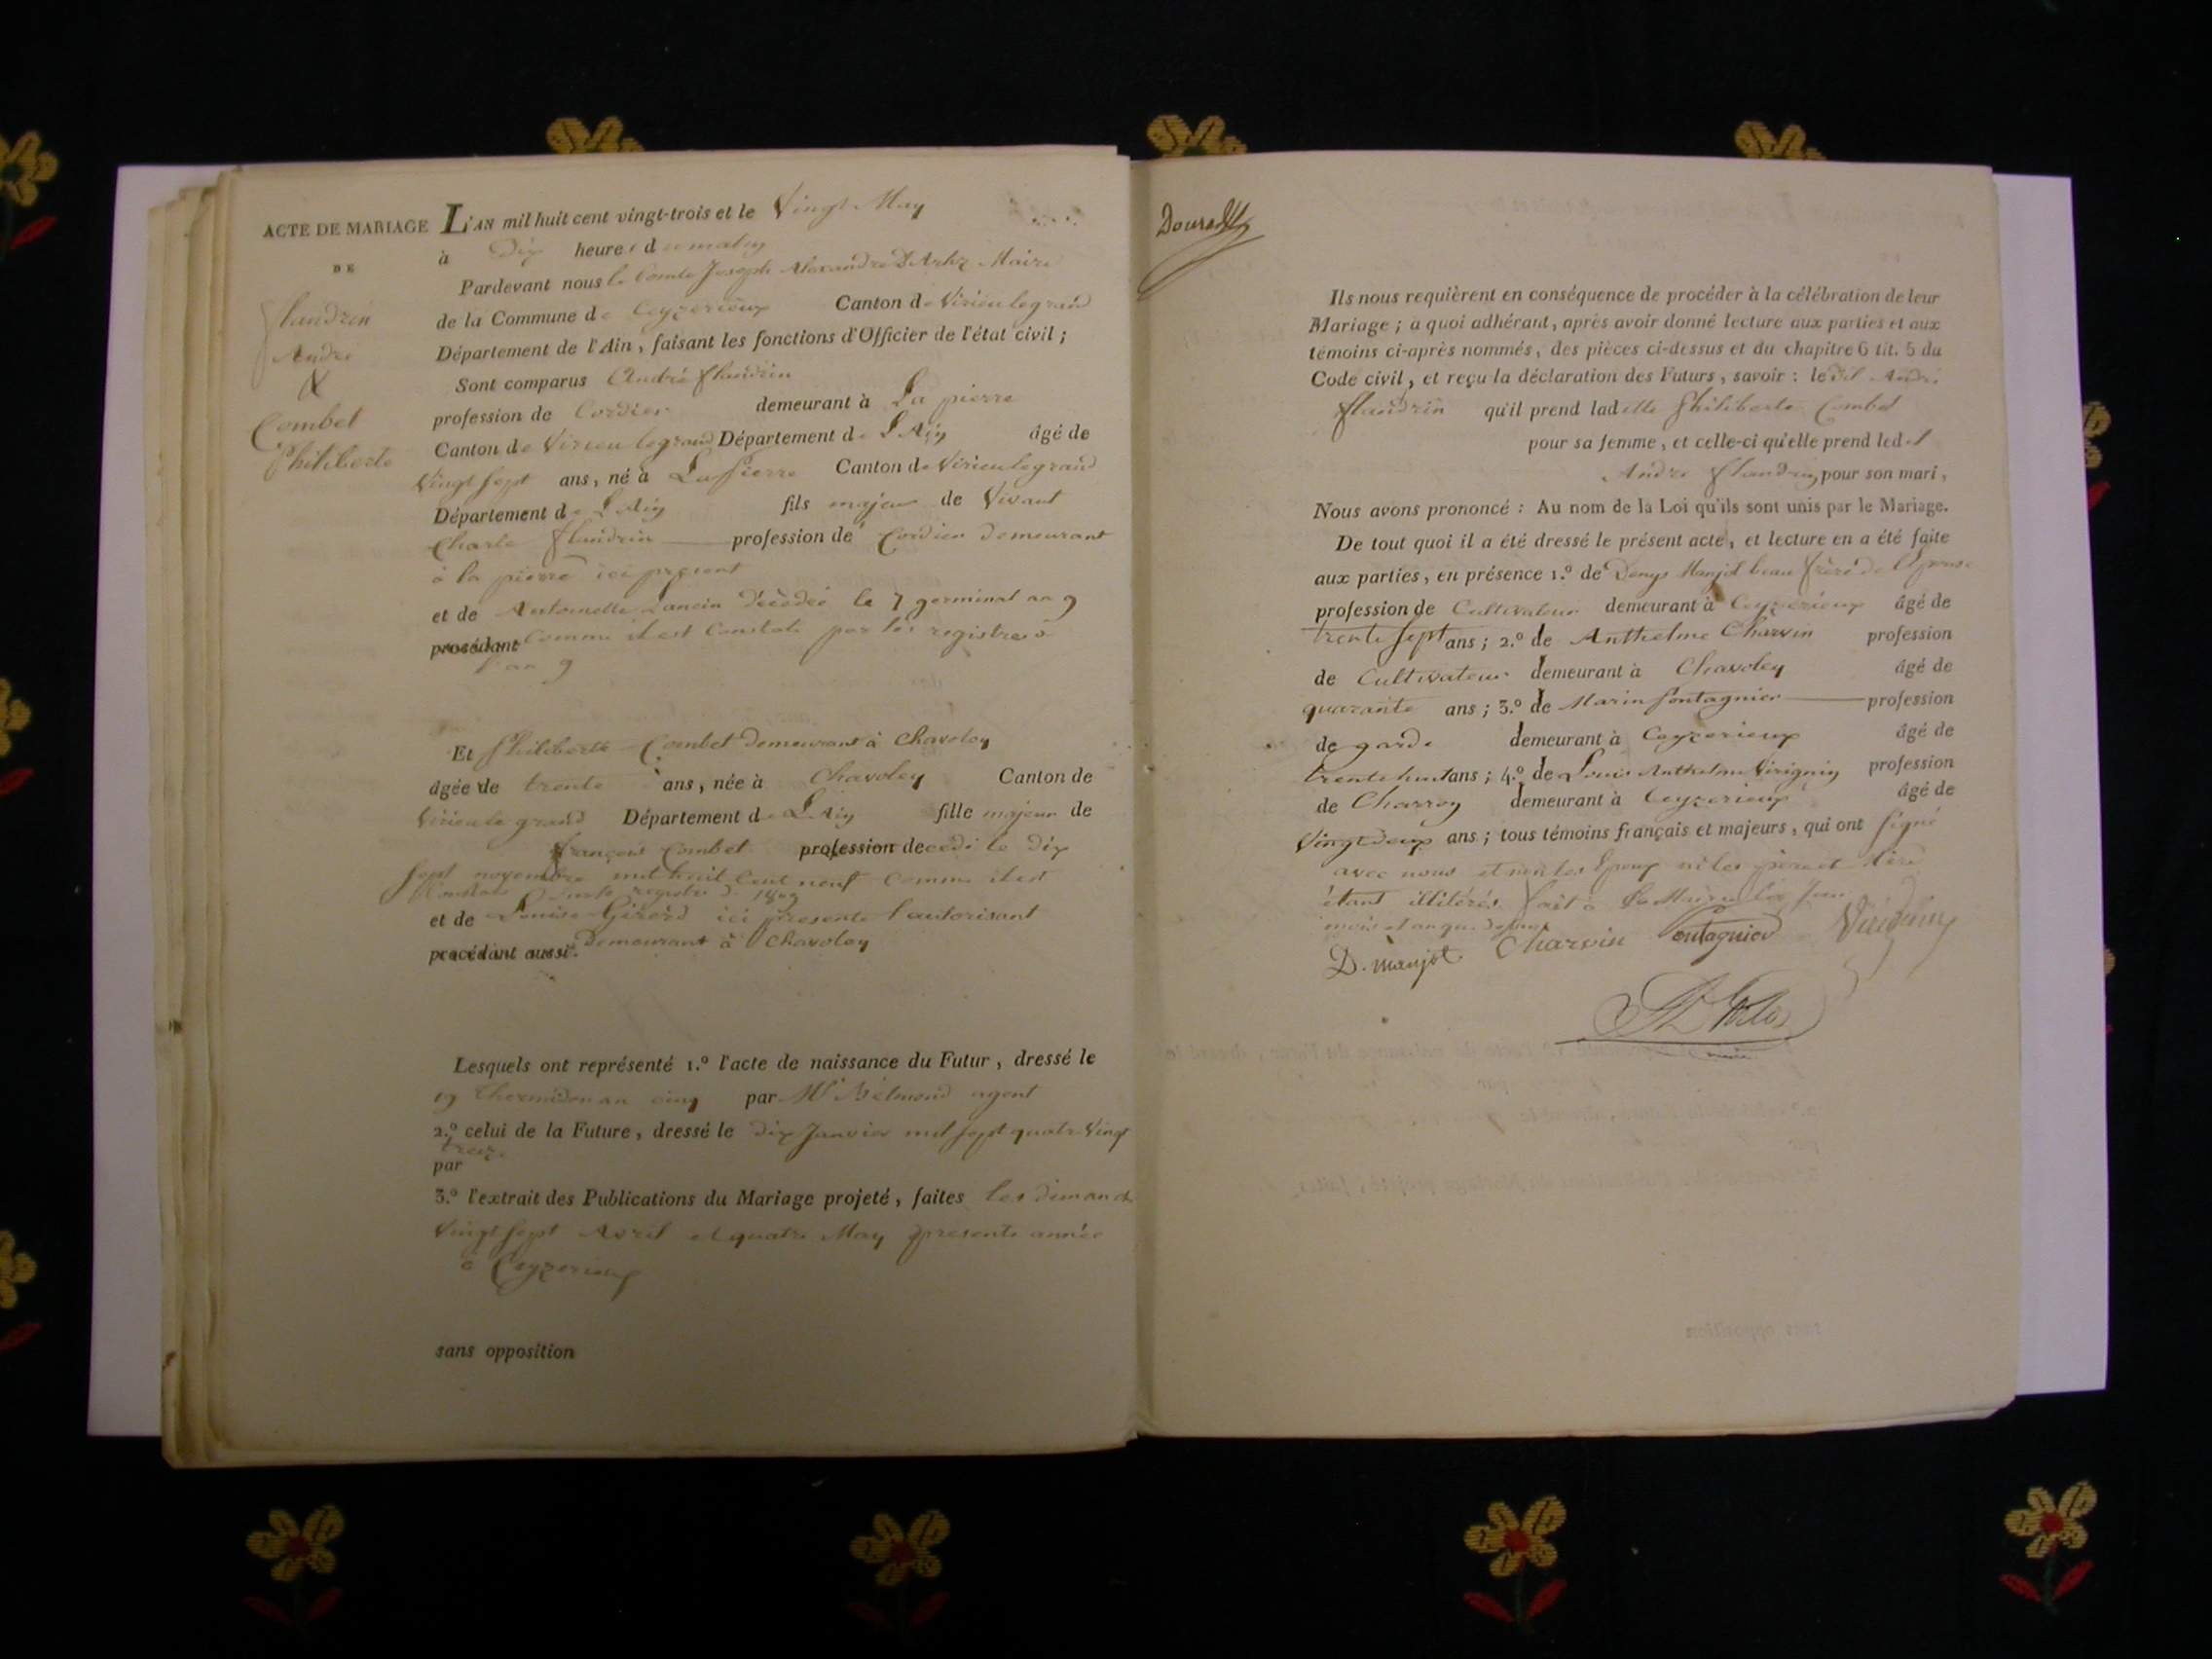 ACTE DE MARIAGE L'AN mil huit cent vingt-trois et le Vingt May
DE
à Dix heures du matin
Pardevant nous le Comte Joseph Alexandre D'Arloz Maire
de la Commune de Ceyzerieux Canton de Virieu legrand
Département de l'Ain, faisant les fonctions d'Officier de l'état civil;
flandrin
André
&
Combet
Philiberte
Sont comparus André flandrin
profession de Cordier demeurant à La pierre
Canton de Virieu legrand Département de L'Ain âgé de
Vingt sept ans, né à La pierre Canton de Virieu legrand
Département de L'Ain fils majeur de Vivant
Charle flandrin profession de Cordier demeurant
à la pierre ici présent
et de Antoinette Lancin décédée le 7 germinal an 9
procédant Comme il est Constaté par les registres
l'an 9
Et Philiberte Combet demeurant à Chavoley
âgée de trente ans, née à Chavoley Canton de
Virieu le grand Département de L'Ain fille majeur de
françois Combet profession decédé le dix
sept novembre mil huit Cent neuf comme il est
Constaté registre de 1809
et de Louise Girerd ici présente l'autorisant
procédant aussi. demeurant à Chavoley
Lesquels ont représenté 1.º l'acte de naissance du Futur, dressé le
19 Thermidor an cinq par Mr Belmond agent
2.º celui de la Future, dressé le dix Janvier mil sept quatre Vingt
treize
par
3.º l'extrait des Publications du Mariage projeté, faites les dimanch
Vingt sept Avril et quatre May présente année
à Ceyzerieux
sans opposition
Ils nous requièrent en conséquence de procéder à la célébration de leur
Mariage; à quoi adhérant, après avoir donné lecture aux parties et aux
témoins ci-après nommés, des pièces ci-dessus et du chapitre 6 tit. 5 du
Code civil, et reçu la déclaration des Futurs, savoir: le dit André
flandrin qu'il prend ladette Philiberte Combet
pour sa femme, et celle-ci qu'elle prend led.t
André flandrin pour son mari,
Nous avons prononcé: Au nom de la Loi qu'ils sont unis par le Mariage.
De tout quoi il a été dressé le présent acte, et lecture en a été faite
aux parties, en présence 1.º de Denys Manjot beau frère de l'Epouse
profession de Cultivateur demeurant à Ceyzerieux âgé de
trente sept ans; 2.º de Anthelme Charvin profession
de Cultivateur demeurant à Chavoley âgé de
quarante ans; 3.º de Marin fontagnier profession
de garde demeurant à Ceyzerieux âgé de
trente huit ans; 4.º de Louis Anthelme Virignin profession
de Charron demeurant à Ceyzerieux âgé de
Vingt deux ans; tous témoins français et majeurs, qui ont signé
avec nous et non les Epoux ni les père et mère
étant illitérés. fait à la Mairie les jour
mois et an que dessus
D. manjot Charvin fontagnier